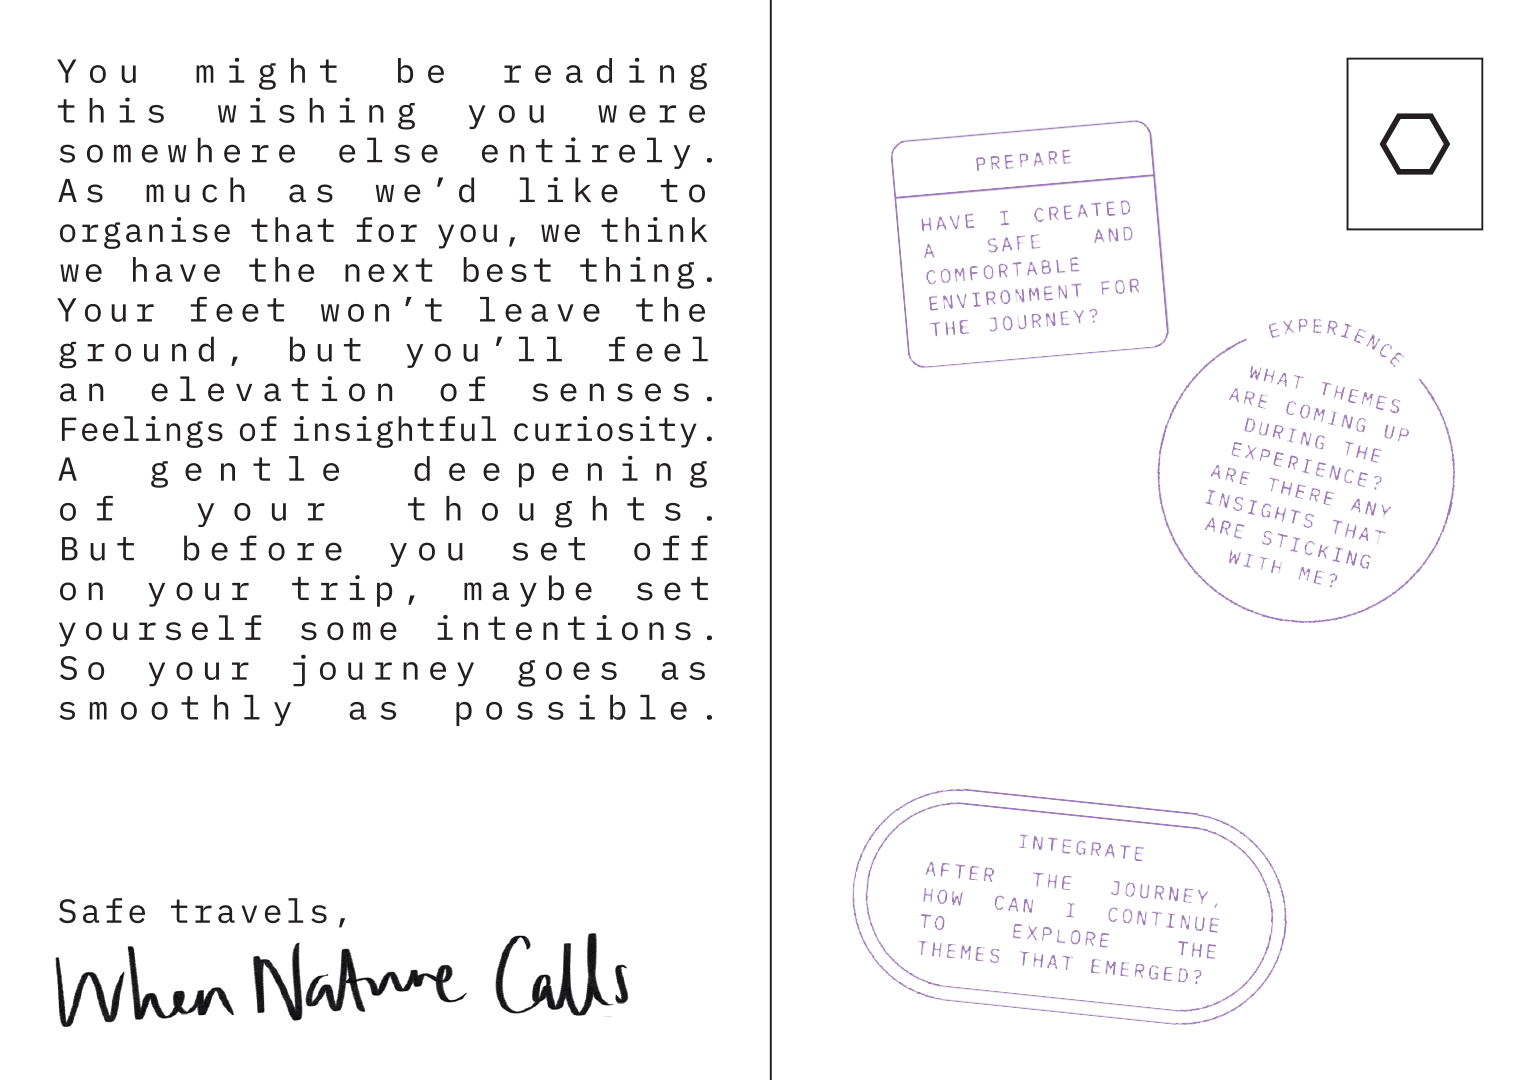 You might be reading
this wishing you were
somewhere else entirely.
As much as we’d like to
organise that for you, we think
we have the next best thing.
Your feet won’t leave the
ground, but you’ll feel
an elevation of senses.
Feelings of insightful curiosity.
A gentle deepening
of your thoughts.
But before you set off
on your trip, maybe set
yourself some intentions.
So your journey goes as
smoothly as possible.
Safe travels,
When Nature Calls
PREPARE
HAVE I CREATED
A SAFE AND
COMFORTABLE
ENVIRONMENT FOR
THE JOURNEY?
EXPERIENCE
WHAT THEMES
ARE COMING UP
DURING THE
EXPERIENCE?
ARE THERE ANY
INSIGHTS THAT
ARE STICKING
WITH ME?
INTEGRATE
AFTER THE JOURNEY,
HOW CAN I CONTINUE
TO EXPLORE THE
THEMES THAT EMERGED?